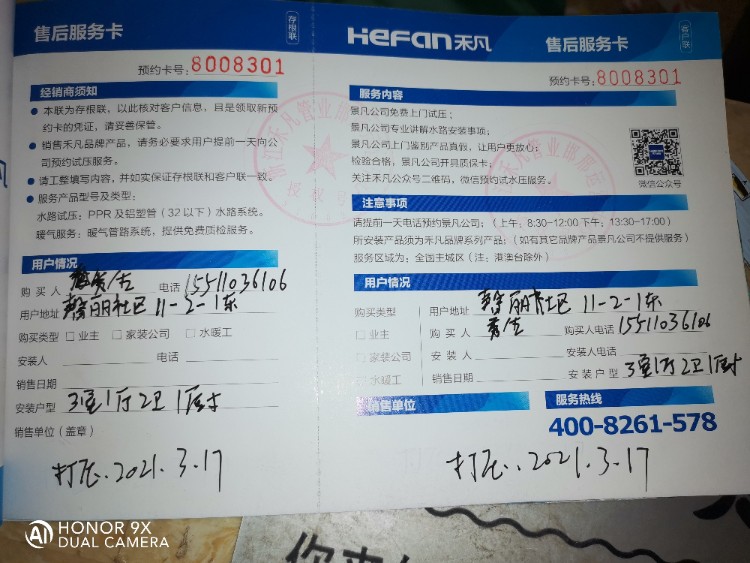 售后服务卡
存根联
预约卡号: 8008301
经销商须知
● 本联为存根联，以此核对客户信息，且是领取新预
约卡的凭证，请妥善保管。
● 销售禾凡品牌产品，请务必要求用户提前一天向公
司预约试压服务。
● 请工整填写内容，并如实保证存根联和客户联一致。
● 服务产品型号及类型:
水路试压: PPR及铝塑管（32以下）水路系统。
暖气服务: 暖气管路系统，提供免费质检服务。
用户情况
购买人 电话 15511036106
用户地址 社区 11-2-1东
购买类型 □ 业主 □ 家装公司 □ 水暖工
安装人 电话
销售日期
安装户型 3室1厅2卫1厨
销售单位（盖章）
打压.2021.3.17
HeFan禾凡
售后服务卡
客户联
预约卡号: 8008301
服务内容
景凡公司免费上门试压;
景凡公司专业讲解水路安装事项;
景凡公司上门鉴别产品真假，让用户更放心;
检验合格，景凡公司开具质保卡;
关注禾凡公众号二维码，微信预约试水压服务。
微信公众号
注意事项
请提前一天电话预约景凡公司;（上午: 8:30-12:00 下午: 13:30-17:00）
所安装产品须为禾凡品牌系列产品;（如有其它品牌产品景凡公司不提供服务）
服务区域为: 全国主城区（注: 港澳台除外）
用户情况
购买类型 用户地址 社区 11-2-1东
□ 业主 购买人 购买人电话 15511036106
□ 家装公司 安装人 安装人电话
□ 水暖工 销售日期 安装户型 3室1厅2卫1厨
销售单位
服务热线
400-8261-578
打压.2021.3.17
HONOR 9X
DUAL CAMERA